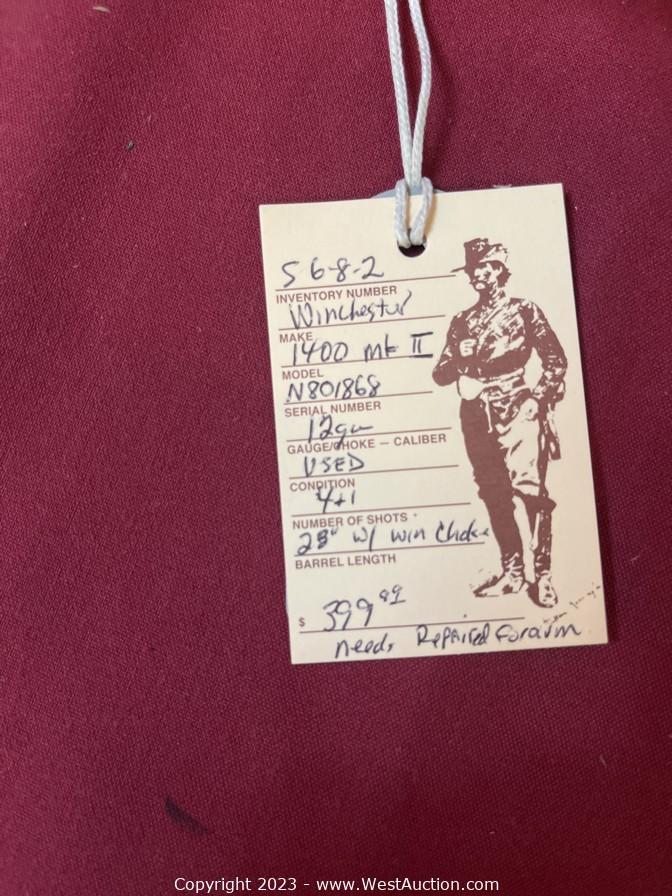 S 6-8-2
INVENTORY NUMBER
Winchester
MAKE
1400 mk II
MODEL
N801868
SERIAL NUMBER
12ga
GAUGE/CHOKE — CALIBER
USED
CONDITION
4+1
NUMBER OF SHOTS
28" w/ win Choke
BARREL LENGTH
$ 399
needs Repaired Forarm
Copyright 2023 - www.WestAuction.com